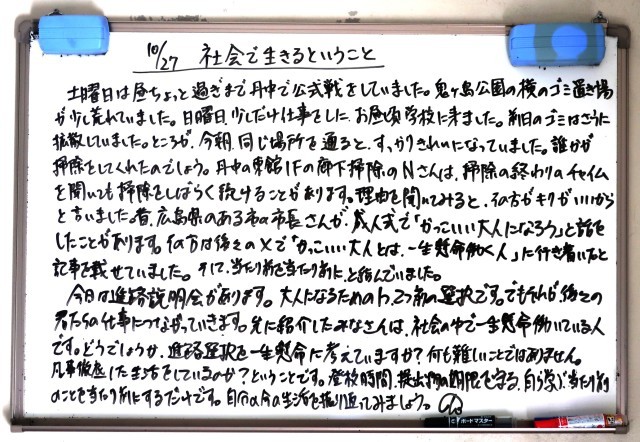 10/27 社会で生きるということ
土曜日は昼ちょっと過ぎまで丹中で公式戦をしていました。鬼ヶ島公園の横のゴミ置き場
が少し荒れていました。日曜日、少しだけ仕事をしに、お昼頃学校に来ました。前日のゴミはさらに
拡散していました。ところが、今朝、同じ場所を通ると、すっかりきれいになっていました。誰かが
掃除をしてくれたのでしょう。丹中の東館1Fの廊下掃除のNさんは、掃除の終わりのチャイム
を聞いても掃除をしばらく続けることがあります。理由を聞いてみると、その方がキリがいいから
と言いました。昔、広島県のある市の市長さんが、成人式で「かっこいい大人になろう」と話を
したことがあります。その方は後々のXで「かっこいい大人とは、一生懸命働く人」に行き着いたと
記事を載せていました。そして、当たり前を当たり前に、と結んでいました。
今日は進路説明会があります。大人になるための1、2つ前の選択です。でもそれが後々の
君たちの仕事につながっていきます。先に紹介したみなさんは、社会の中で一生懸命働いている人
です。どうでしょうか、進路選択を一生懸命に考えていますか？何も難しいことではありません。
凡事徹底した生活をしているのか？ということです。登校時間、提出物の期限を守る、自ら学ぶ、当たり前
のことを当たり前にするだけです。自分の今の生活を振り返ってみましょう。
ボードマスター